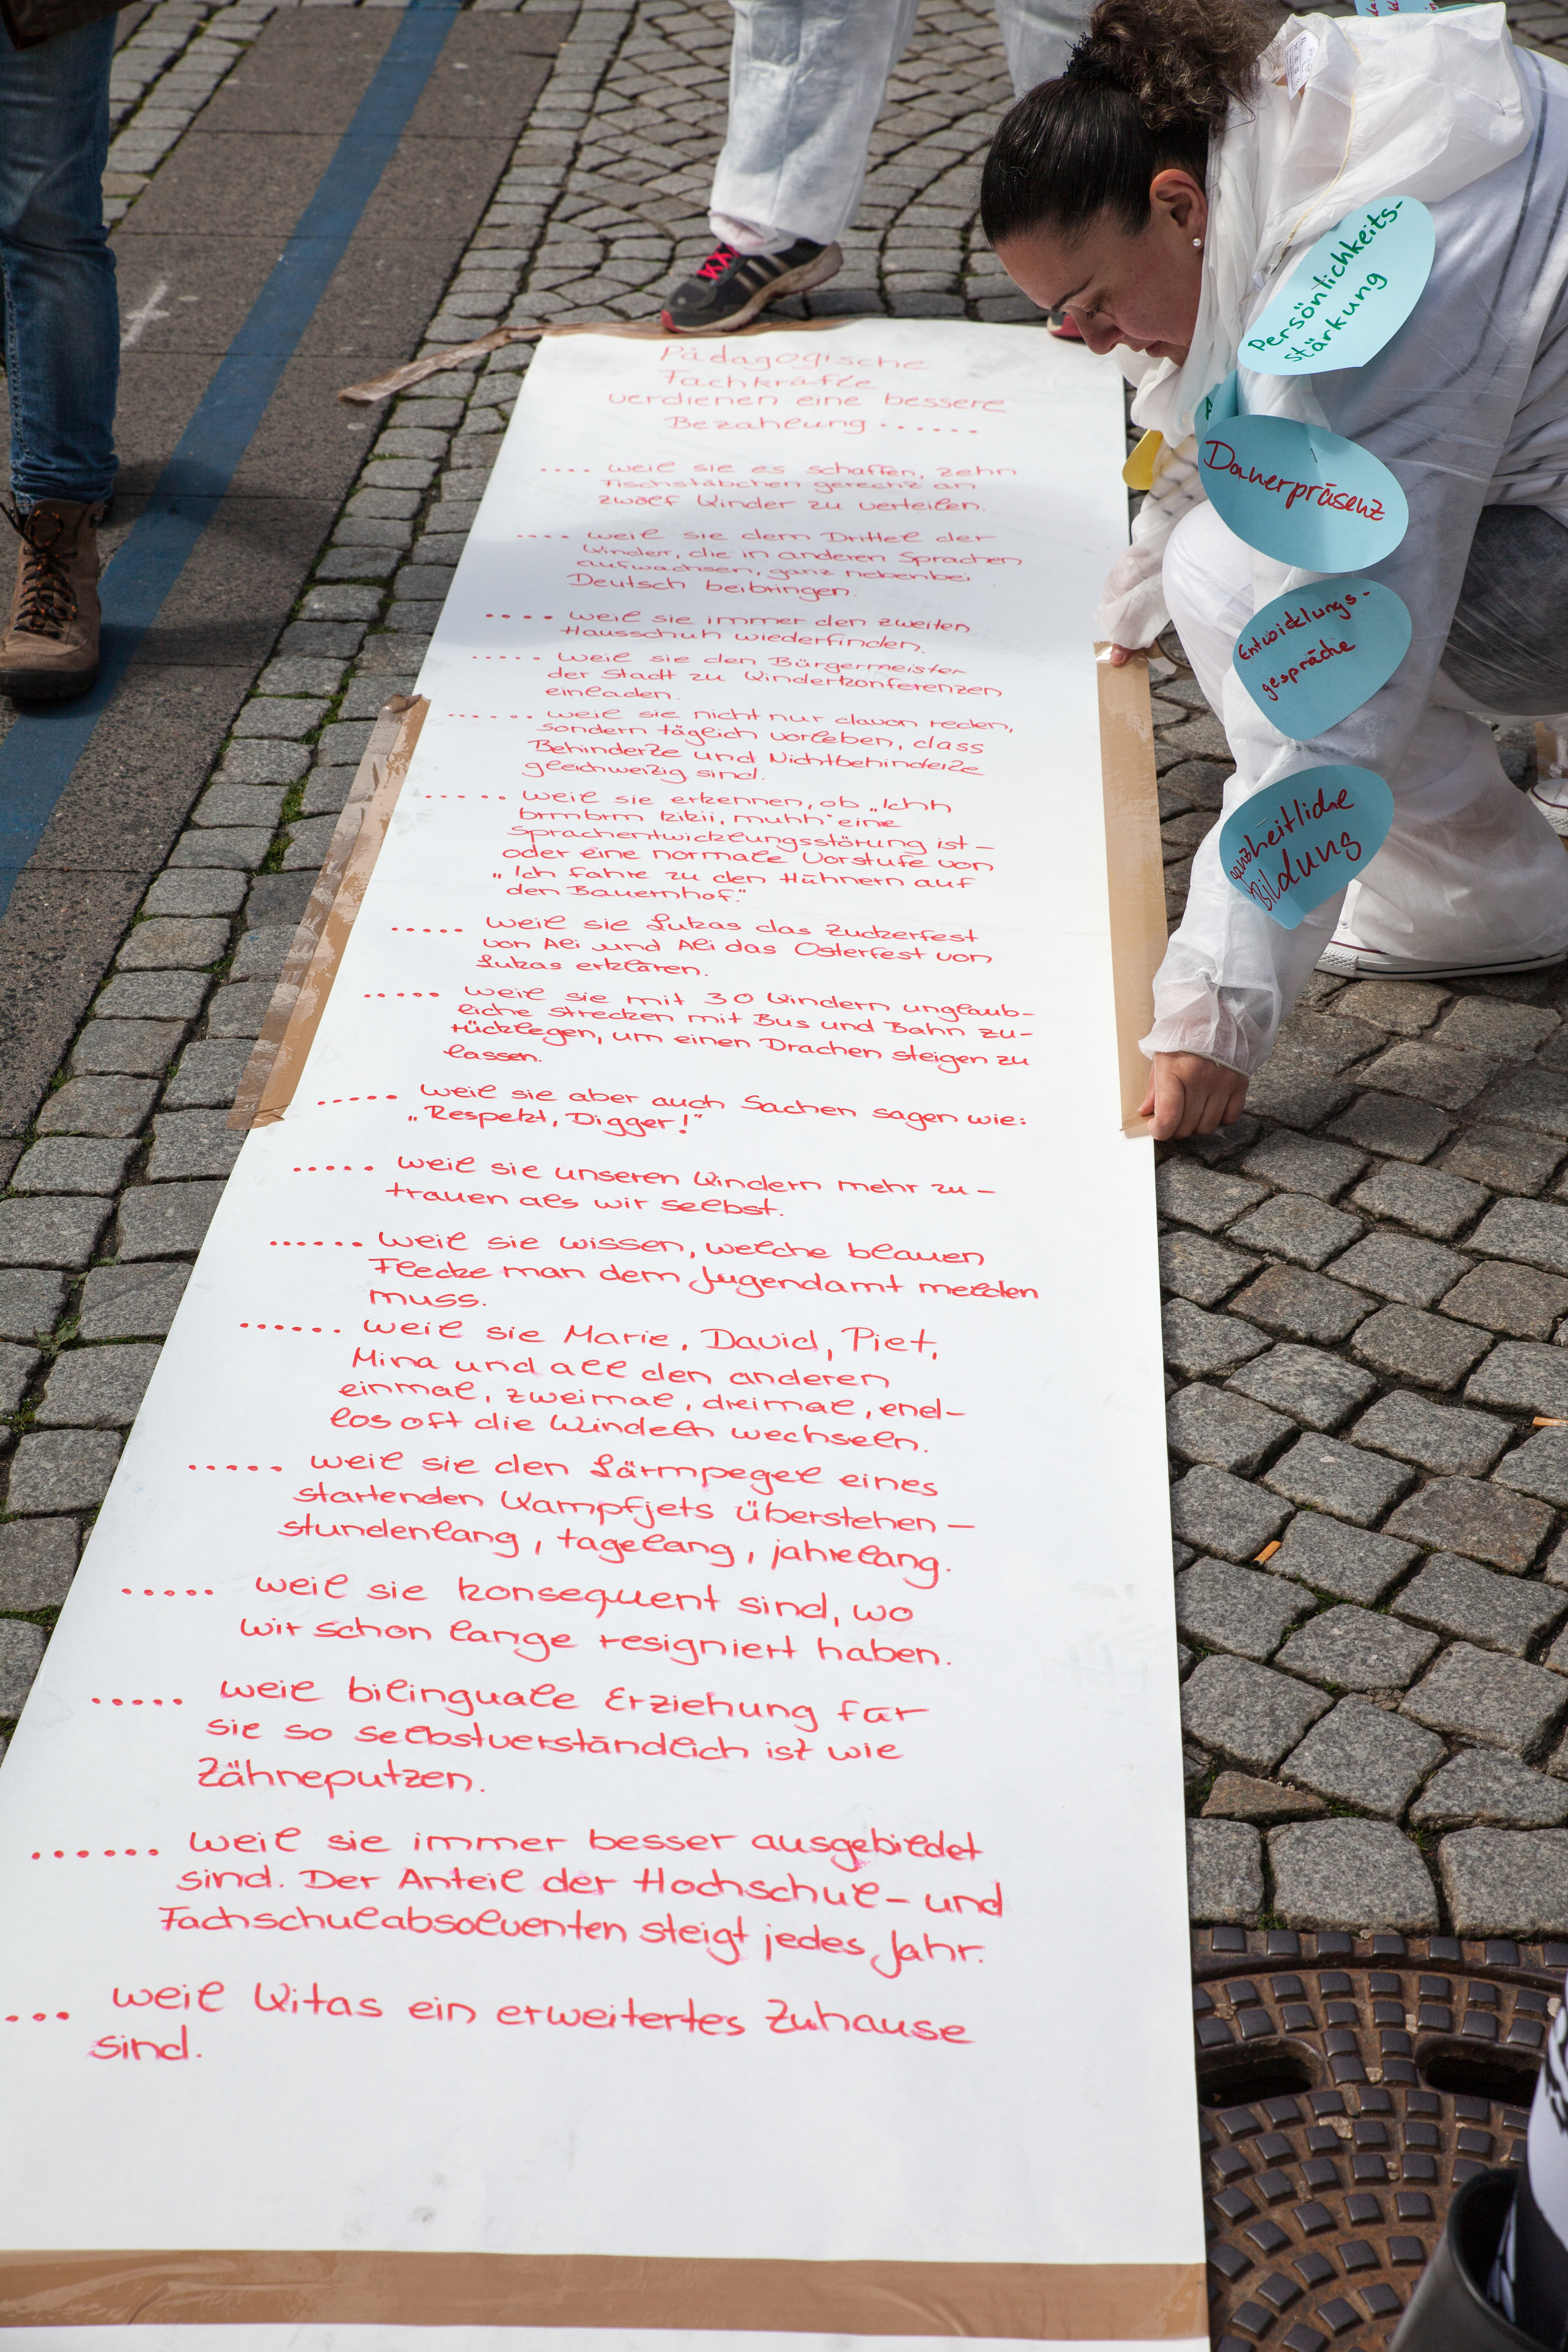 Pädagogische
Fachkräfte
verdienen eine bessere
Bezahlung ......
.... weil sie es schaffen, zehn
Fischstäbchen gerecht an
zwölf Kinder zu verteilen.
.... weil sie dem Drittel der
Kinder, die in anderen Sprachen
aufwachsen, ganz nebenbei
Deutsch beibringen.
.... weil sie immer den zweiten
Hausschuh wiederfinden.
..... weil sie den Bürgermeister
der Stadt zu Kinderkonferenzen
einladen.
...... weil sie nicht nur davon reden,
sondern täglich vorleben, dass
Behinderte und Nichtbehinderte
gleichwertig sind.
..... weil sie erkennen, ob „Ichh
brmbrm kikii, muhh" eine
Sprachentwicklungsstörung ist –
oder eine normale Vorstufe von
„Ich fahre zu den Hühnern auf
den Bauernhof."
..... weil sie Lukas das Zuckerfest
von Ali und Ali das Osterfest von
Lukas erklären.
..... weil sie mit 30 Kindern unglaub-
liche Strecken mit Bus und Bahn zu-
rücklegen, um einen Drachen steigen zu
lassen.
..... weil sie aber auch Sachen sagen wie:
„Respekt, Digger!"
..... weil sie unseren Kindern mehr zu-
trauen als wir selbst.
...... weil sie wissen, welche blauen
Flecke man dem Jugendamt melden
muss.
...... weil sie Marie, David, Piet,
Mina und all den anderen
einmal, zweimal, dreimal, end-
los oft die Windeln wechseln.
..... weil sie den Lärmpegel eines
startenden Kampfjets überstehen –
stundenlang, tagelang, jahrelang.
..... weil sie konsequent sind, wo
wir schon lange resigniert haben.
..... weil bilinguale Erziehung für
sie so selbstverständlich ist wie
Zähneputzen.
...... weil sie immer besser ausgebildet
sind. Der Anteil der Hochschul- und
Fachschulabsolventen steigt jedes Jahr.
... weil Kitas ein erweitertes Zuhause
sind.
Persönlichkeits-
stärkung
Dauerpräsenz
Entwicklungs-
gespräche
ganzheitliche
Bildung